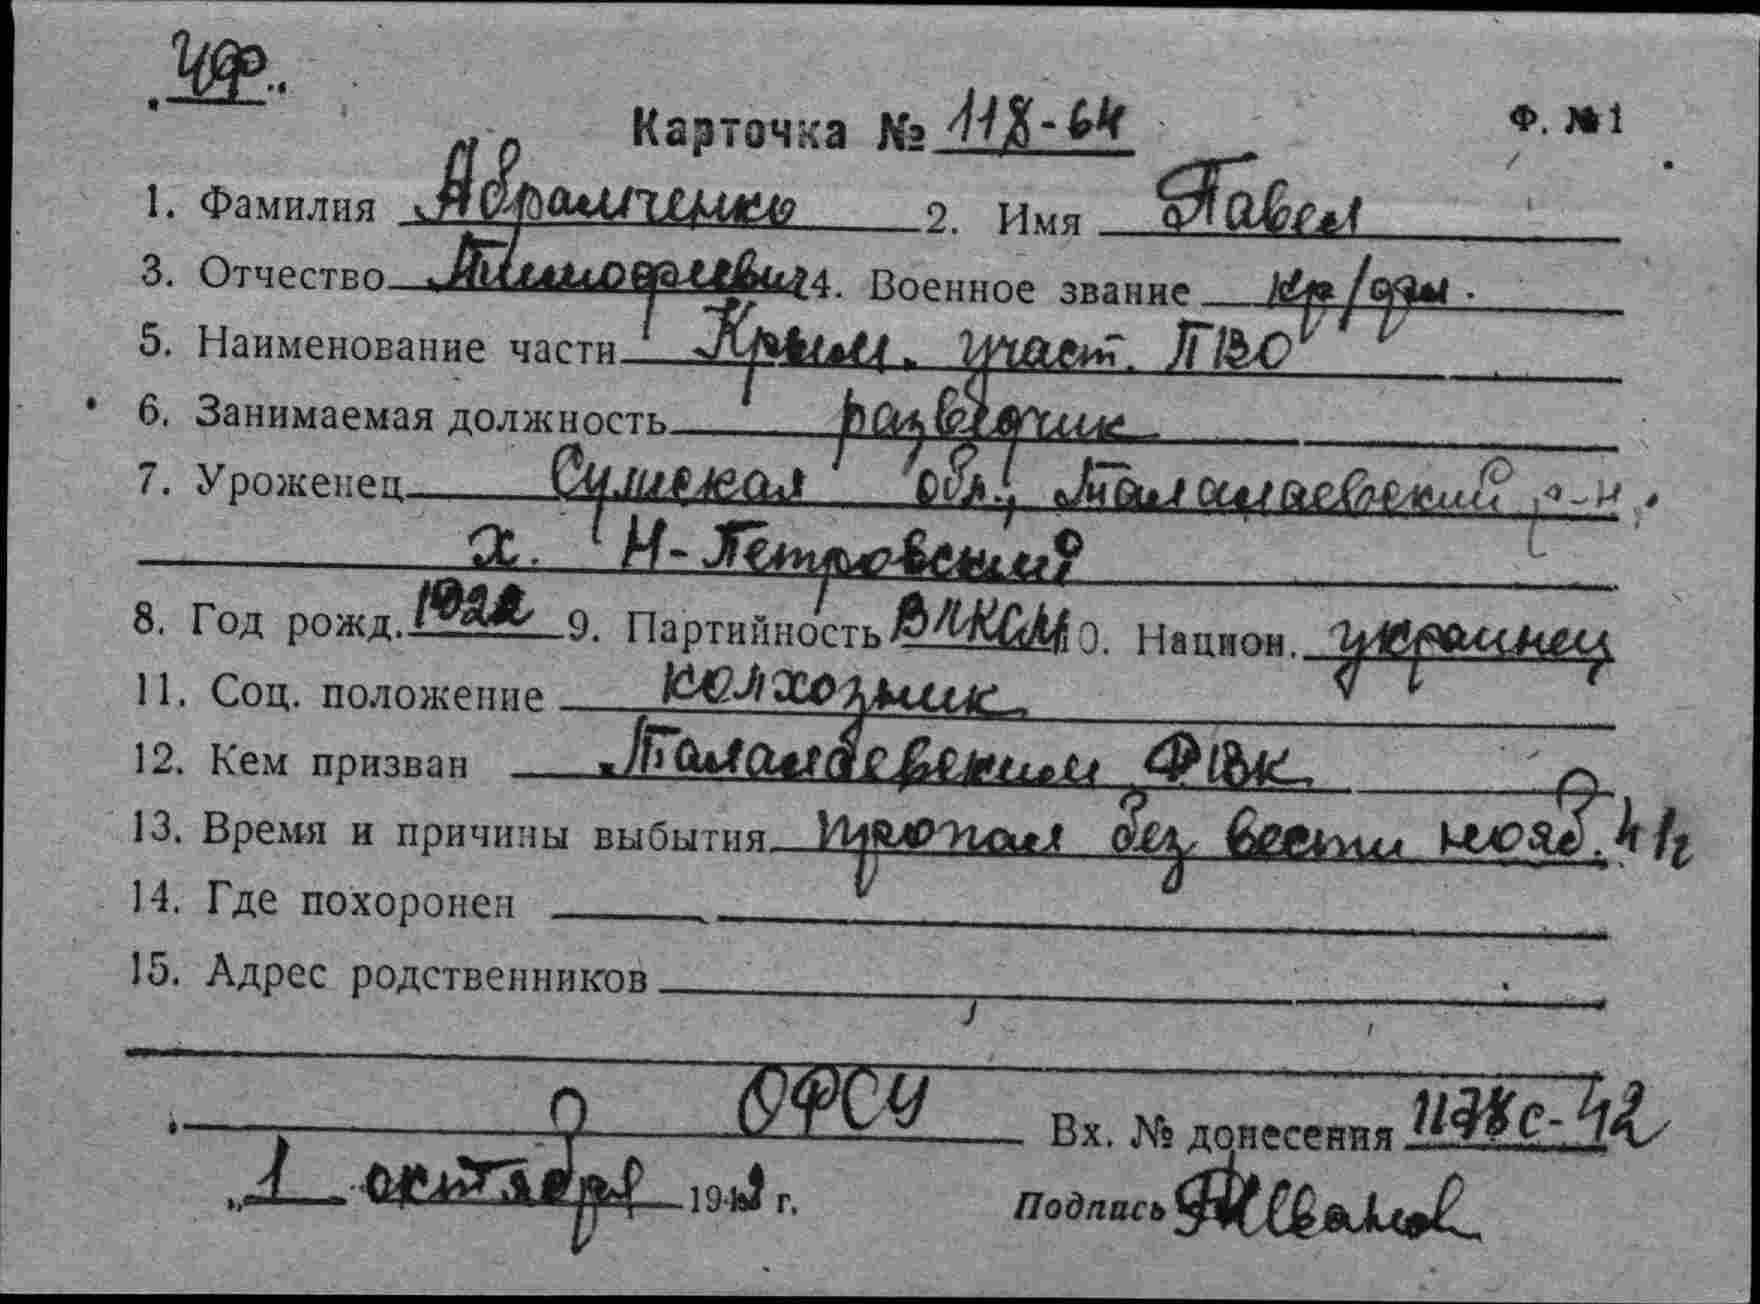 ЧФ.
Карточка № 118-64 Ф. №1
1. Фамилия Абрамченко 2. Имя Павел
3. Отчество Тимофеевич 4. Военное звание кр/фл.
5. Наименование части Крым. участ. ПВО
6. Занимаемая должность разведчик
7. Уроженец Сумская обл., Талалаевский р-н,
х. Н-Петровский
8. Год рожд. 1922 9. Партийность ВЛКСМ 10. Национ. украинец
11. Соц. положение колхозник
12. Кем призван Талалаевским РВК
13. Время и причины выбытия пропал без вести нояб. 41г
14. Где похоронен
15. Адрес родственников
ОФСУ Вх. № донесения 1178с-42
„1 октября 194 г. Подпись Иванов